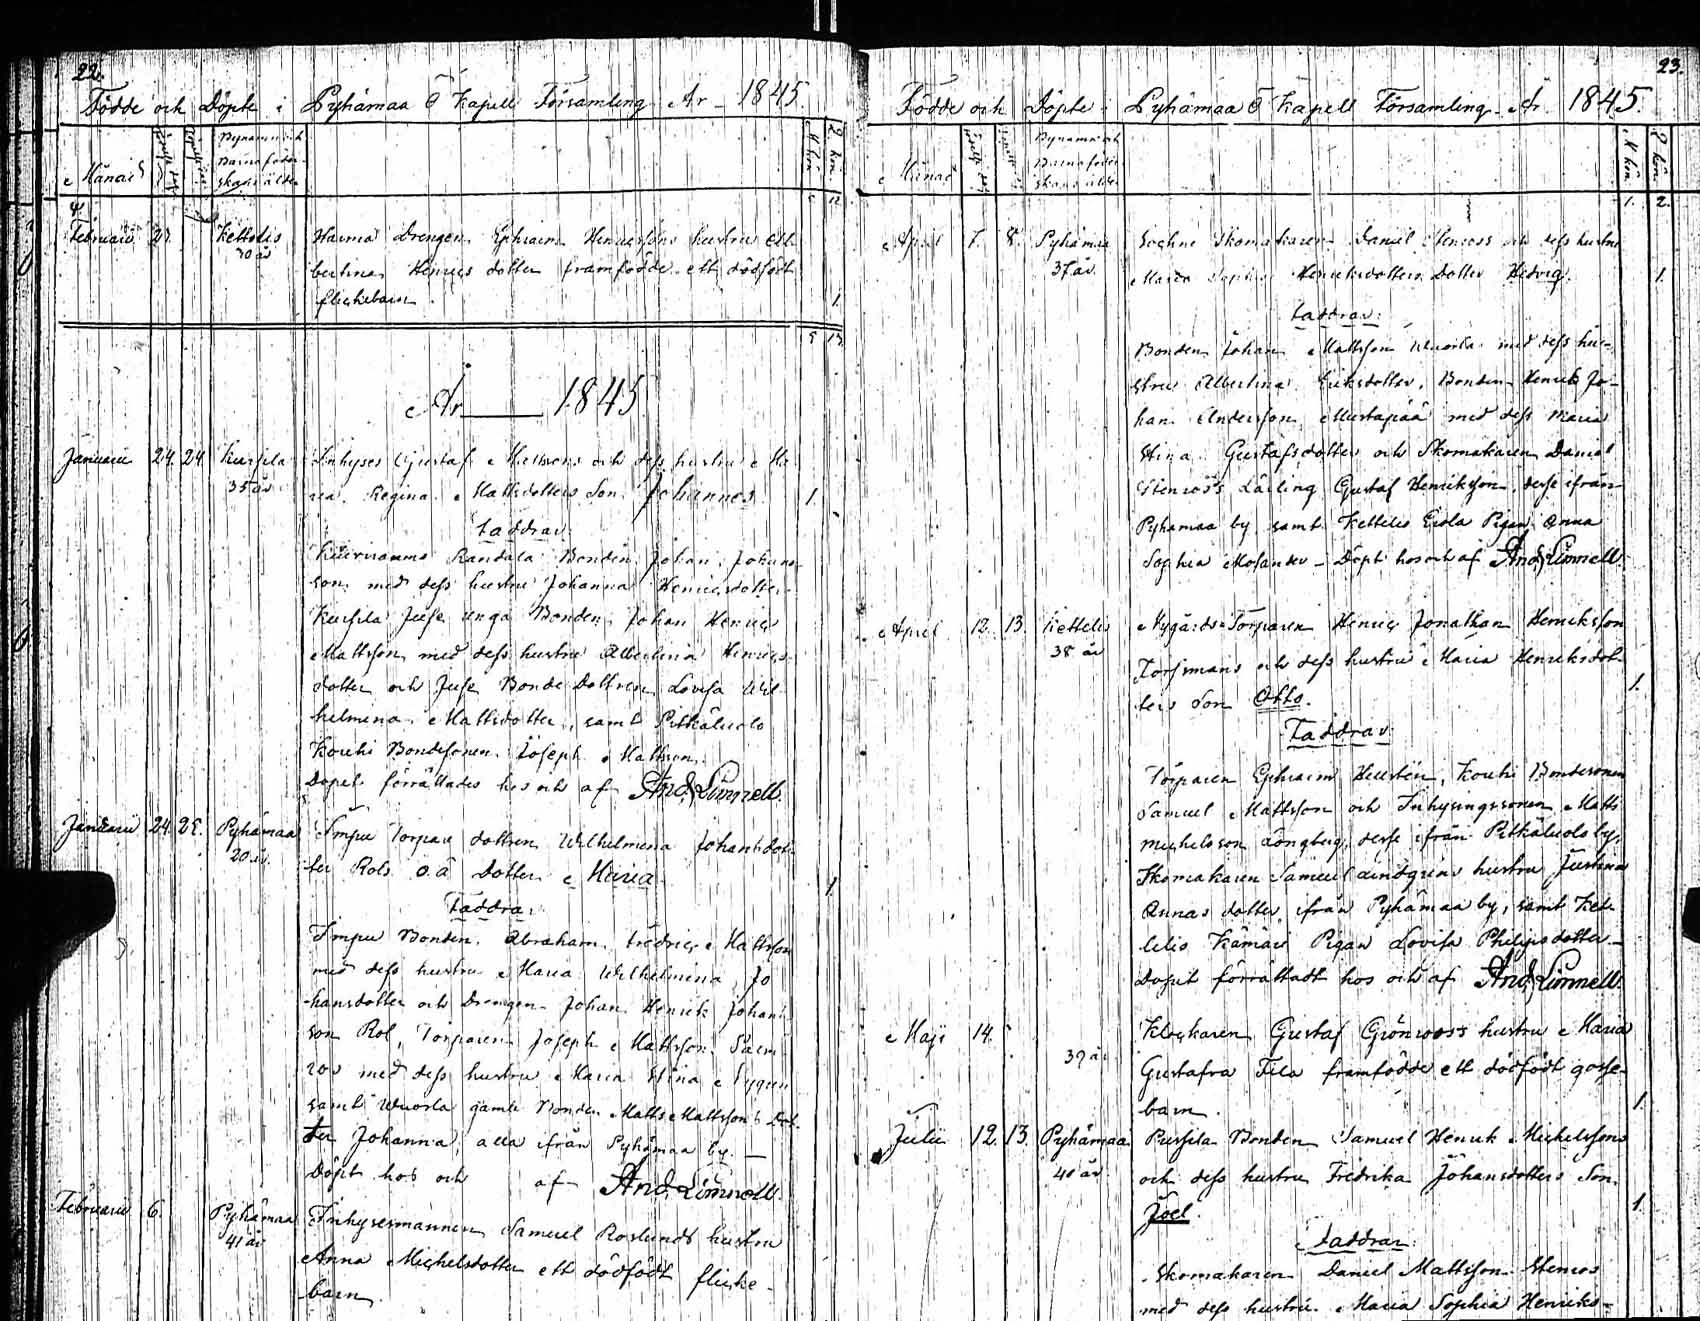 22.
Födde och Döpte i Pyhämaa Ö Kapell Församling År 1845
Månad
Bynamn och
Barnaföder-
skans ålder
M kön
Q kön
Februarii 27. Kettelis Harma Drengen Ephraim Henricsons hustru Al-
30 år bertina Henrics dotter framfödde ett dödfödt
flickebarn. 1.
År 1845
Januarii 24. 24. Kursila Inhyses Gustaf Mattsons och dess hustru Ma-
35 år ria Regina Mattsdotters Son Johannes 1.
Faddrar
Randala Bonden Johan Johans-
son med dess hustru Johanna Henricsdotter
Kursila Juse unga Bonden Johan Henric
Mattsson med dess hustru Albertina Henrics-
dotter och Juse Bonde Dottren Lovisa Wil-
helmina Mattsdotter, samt Pitkäluoto
Kouhi Bondesonen Joseph Mattson.
Dopet förrättades hos och af And. Limnell.
Januarii 24. 25. Pyhämaa Simpu Torpare dottren Wilhelmina Johansdot-
20 år ter Rols o.ä Dotter Maria 1
Faddrar
Simpu Bonden Abraham Fredric Mattsson
med dess hustru Maria Wilhelmina Jo-
hansdotter och Drengen Johan Henrik Johans-
son Rol, Torparen Joseph Mattsson
med dess hustru Maria Stina
samt Wuorla gamle Bonden Matts Mattsson's Dot-
ter Johanna, alla ifrån Pyhämaa by.
Döpt hos och af And. Limnell.
Februarii 6. Pyhämaa Inhysesmannen Samuel Roslunds hustru
41 år Anna Michelsdotter ett dödfödt flicke-
barn.
23.
Födde och Döpte i Pyhämaa Ö Kapell Församling År 1845.
Månad
Bynamn och
Barnaföder-
skans ålder
M kön
Q kön
1. 2.
April 7. 8. Pyhämaa Sochne Skomakaren Daniel Stenroos och dess hustru
37 år Maria Sophia Henriksdotters Dotter Hedvig. 1.
Faddrar:
Bonden Johan Mattsson Wuorla med dess hu-
stru Albertina Eriksdotter, Bonden Henrik Jo-
han Andersson Mustapää med dess Maria
Stina Gustafsdotter och Skomakaren Daniel
Stenroos's Lärling Gustaf Henriksson, desse ifrån
Pyhämaa by samt Kettelis Eerola Pigan Anna
Sophia Molander Döpt hos och af And. Limnell.
April 12. 13. Kettelis Nygårds Torparen Henric Jonathan Henriksson
38 år Torsmans och dess hustru Maria Henriksdot-
ters Son Otto. 1.
Faddrar
Torparen Ephraim Hellstén, Kouhi Bondesonen
Samuel Mattsson och Inhysingssonen Matts
Michelsson Långberg, desse ifrån Pitkäluoto by,
Skomakaren Samuel Lindgrens hustru Justina
Annas dotter ifrån Pyhämaa by, samt Ket-
telis Kämäri Pigan Lovisa Philipsdotter
Dopet förrättadt hos och af And. Limnell.
Maji 14. Klockaren Gustaf Grönroos's hustru Maria
39 år Gustafva Fila framfödde ett dödfödt gosse-
barn. 1.
Julii 12. 13. Pyhämaa Pursila Bonden Samuel Henrik Michelssons
40 år och dess hustru Fredrika Johansdotters Son
Joel. 1.
Faddrar:
Skomakaren Daniel Mattsson Stenros
med dess hustru Maria Sophia Henriks-